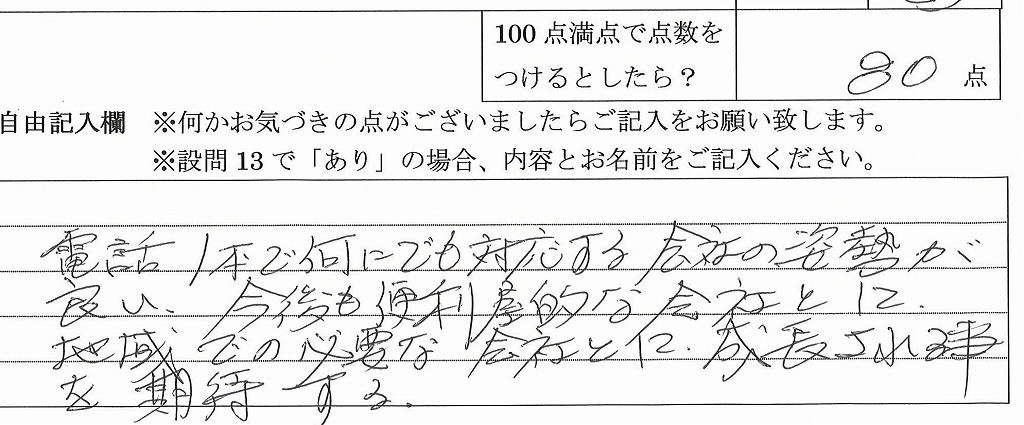 100点満点で点数を
つけるとしたら？
80 点
自由記入欄 ※何かお気づきの点がございましたらご記入をお願い致します。
※設問13で「あり」の場合、内容とお名前をご記入ください。
電話1本で何にでも対応する会社の姿勢が
良い、今後も便利屋的な会社とに、
地域での必要な会社とに、成長される事
を期待する。